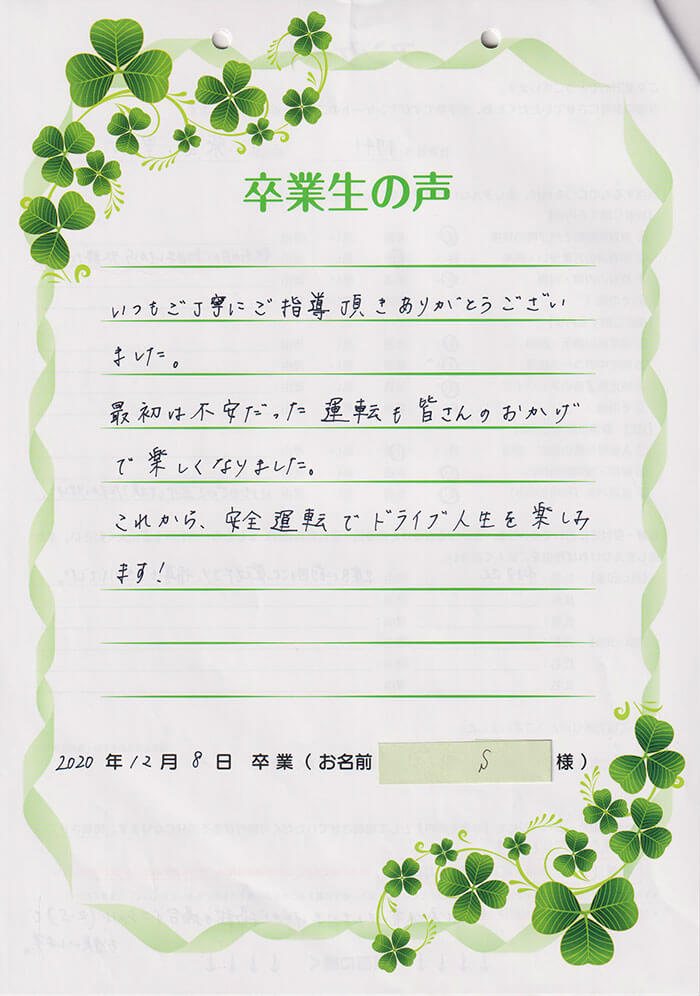 卒業生の声
いつもご丁寧にご指導頂きありがとうござい
ました。
最初は不安だった運転も皆さんのおかげ
で楽しくなりました。
これから、安全運転でドライブ人生を楽しみ
ます!
2020年12月8日 卒業(お名前 S 様)